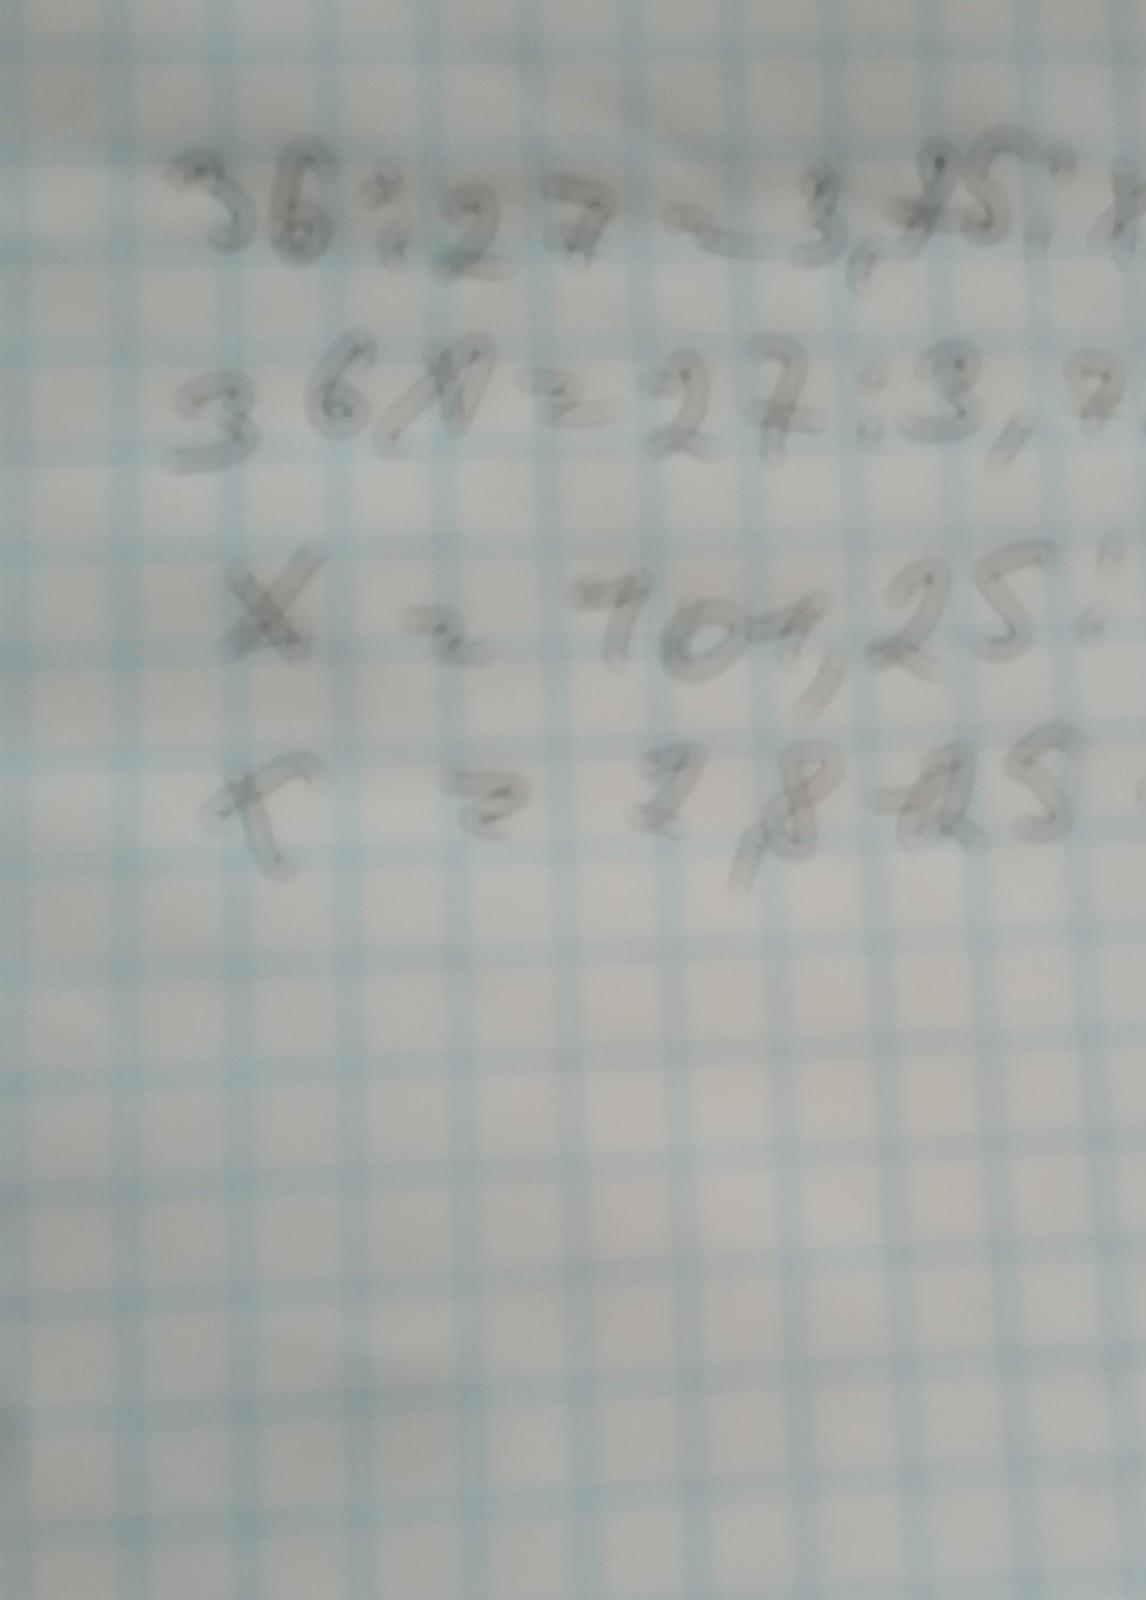 36:27=3,75:x
36x=27:3,7
x = 101,25:
x = 2,8125